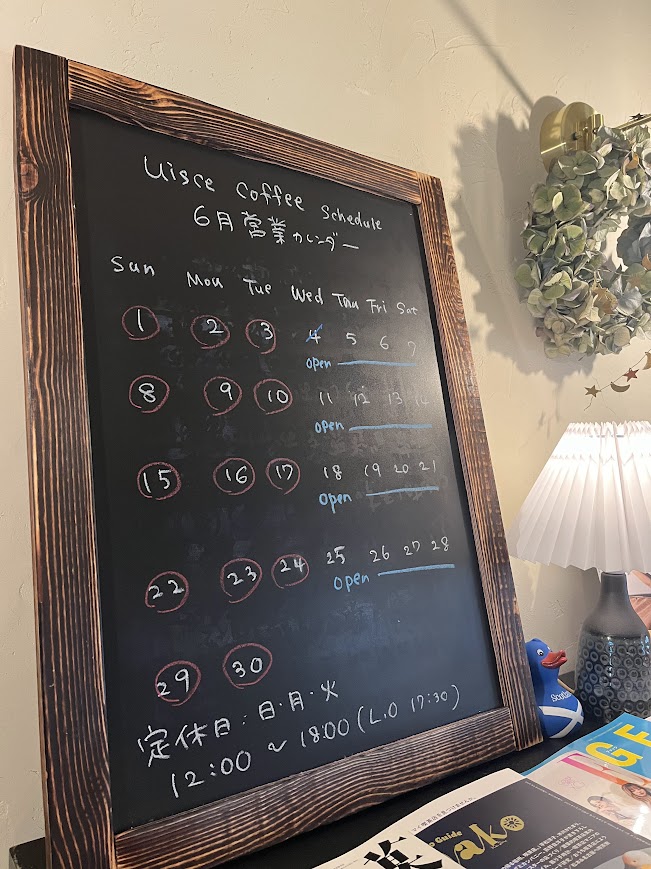 Uisce Coffee Schedule
6月営業カレンダー
Sun Mon Tue Wed Thu Fri Sat
1 2 3 4 5 6 7
open
8 9 10 11 12 13 14
open
15 16 17 18 19 20 21
Open
22 23 24 25 26 27 28
Open
29 30
定休日:日・月・火
12:00 ~ 18:00 (L.O 17:30)
Guide
ako
英